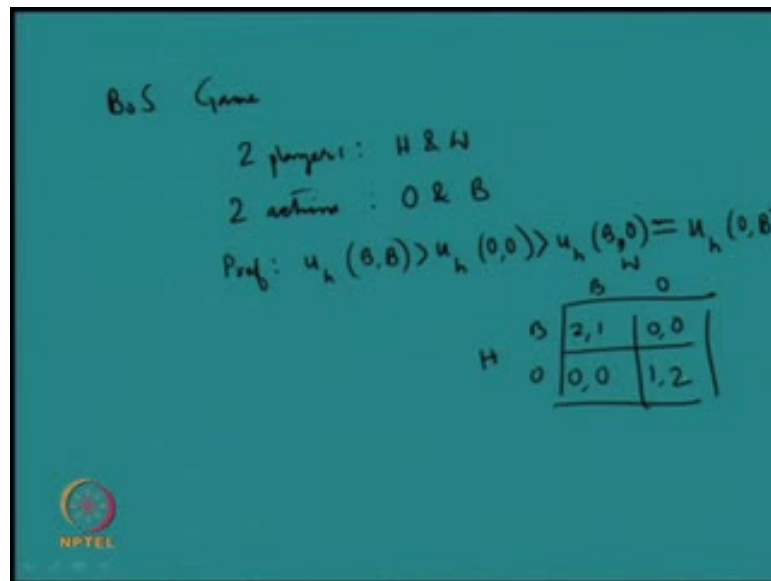 BoS Game
2 players: H & W
2 actions : O & B
Pref: u_h (B,B) > u_h (O,O) > u_h (B,O) = u_h (O,B)
W
B O
B 2,1 0,0
H
O 0,0 1,2
NPTEL